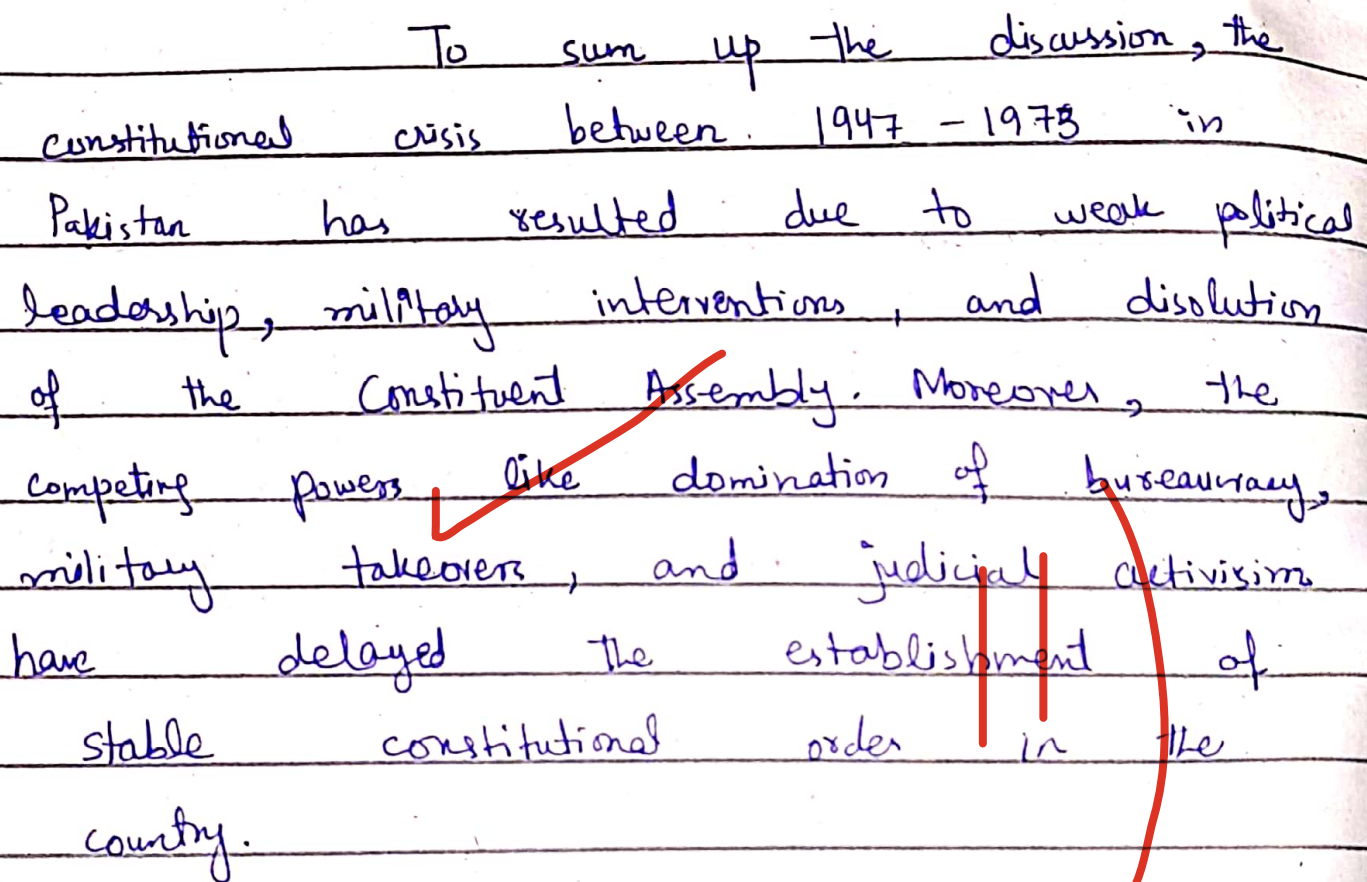 To sum up the discussion, the
constitutional crisis between 1947 - 1973 in
Pakistan has resulted due to weak political
leadership, military interventions, and disolution
of the Constituent Assembly. Moreover, the
competing powers like domination of bureaucracy,
military takeovers, and judicial activisim
have delayed the establishment of
stable constitutional order in the
country.